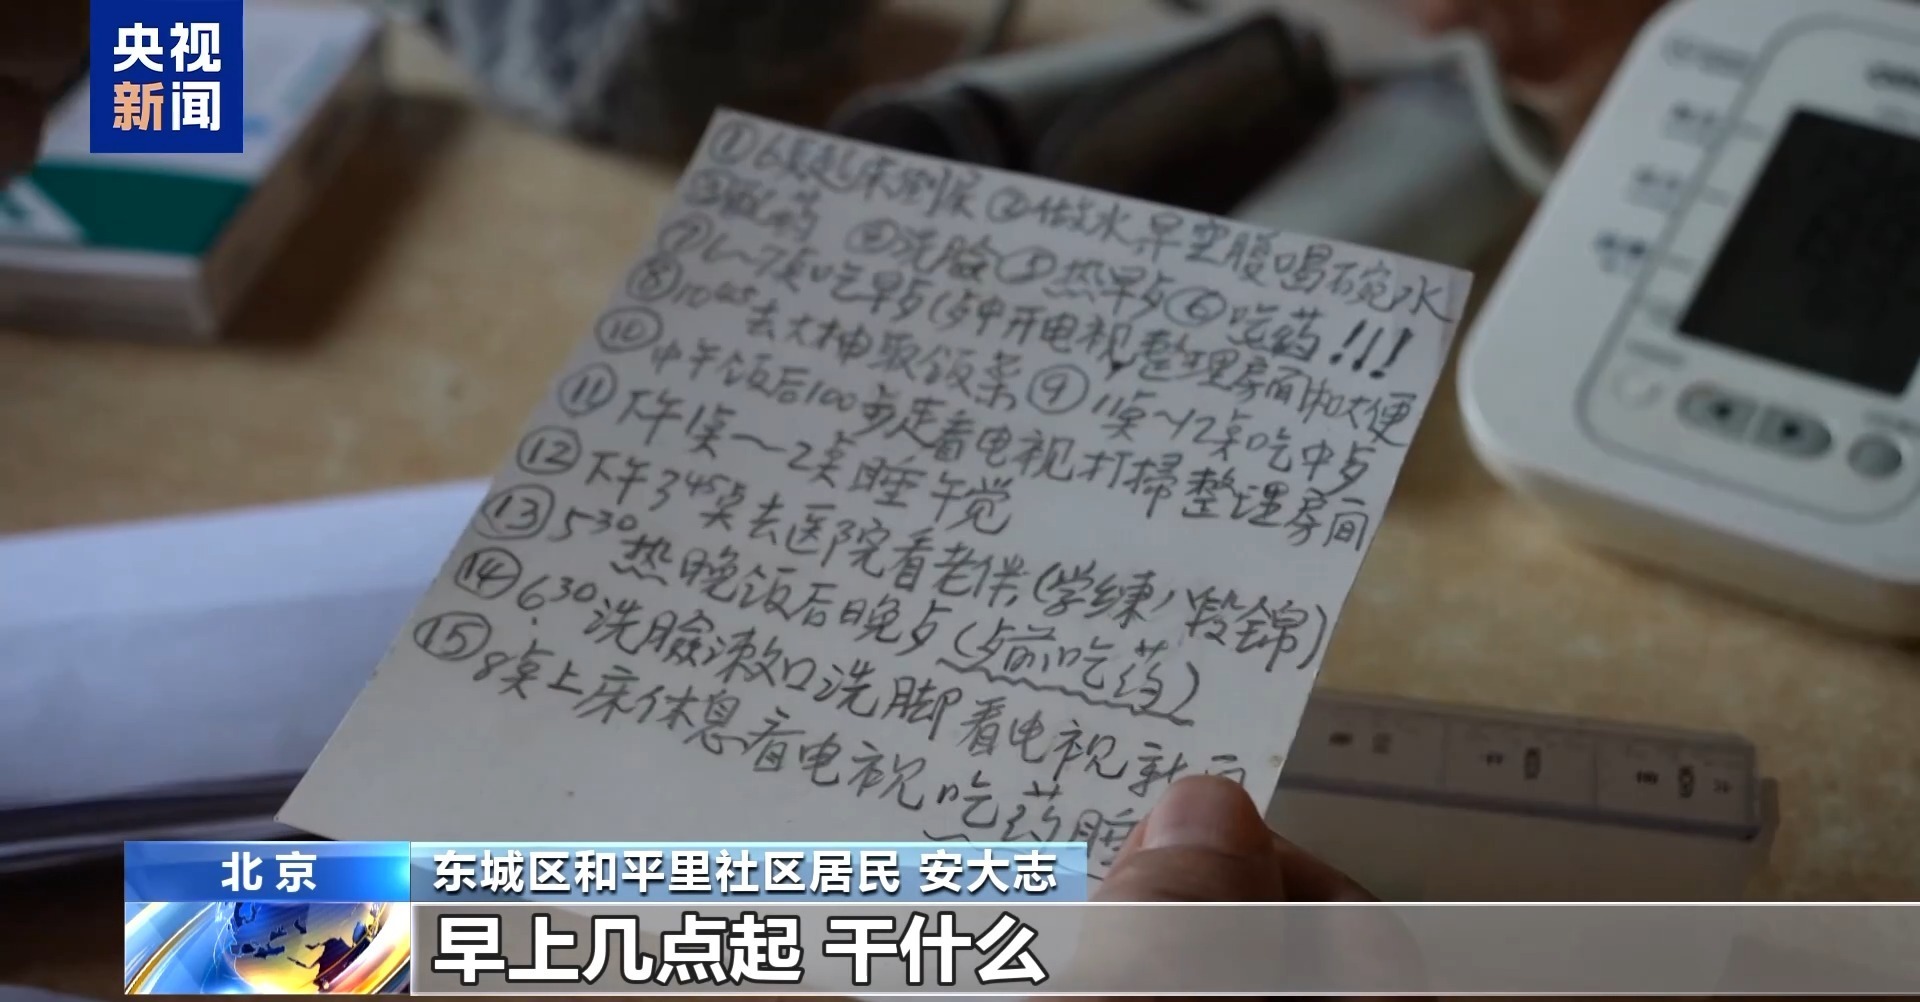 央视
新闻
①6点起床刷尿②做水早空腹喝碗水
③服药 ④洗脸⑤热早歺⑥吃药!!!
⑦6～7点吃早歺(歺中开电视整理房间和大便
⑧10⁴⁵去大柚取饭菜⑨11点～12点吃中歺
⑩中午饭后100步走看电视打掃整理房间
⑪下午1点～2点睡午觉
⑫下午3⁴⁵点去医院看老伴,(学练八段锦)
⑬5³⁰热晚饭后晚歺(歺前吃药)
⑭6³⁰洗臉漱口洗脚看电视新
⑮8点上床休息看电视吃药睡
北京
东城区和平里社区居民 安大志
早上几点起 干什么